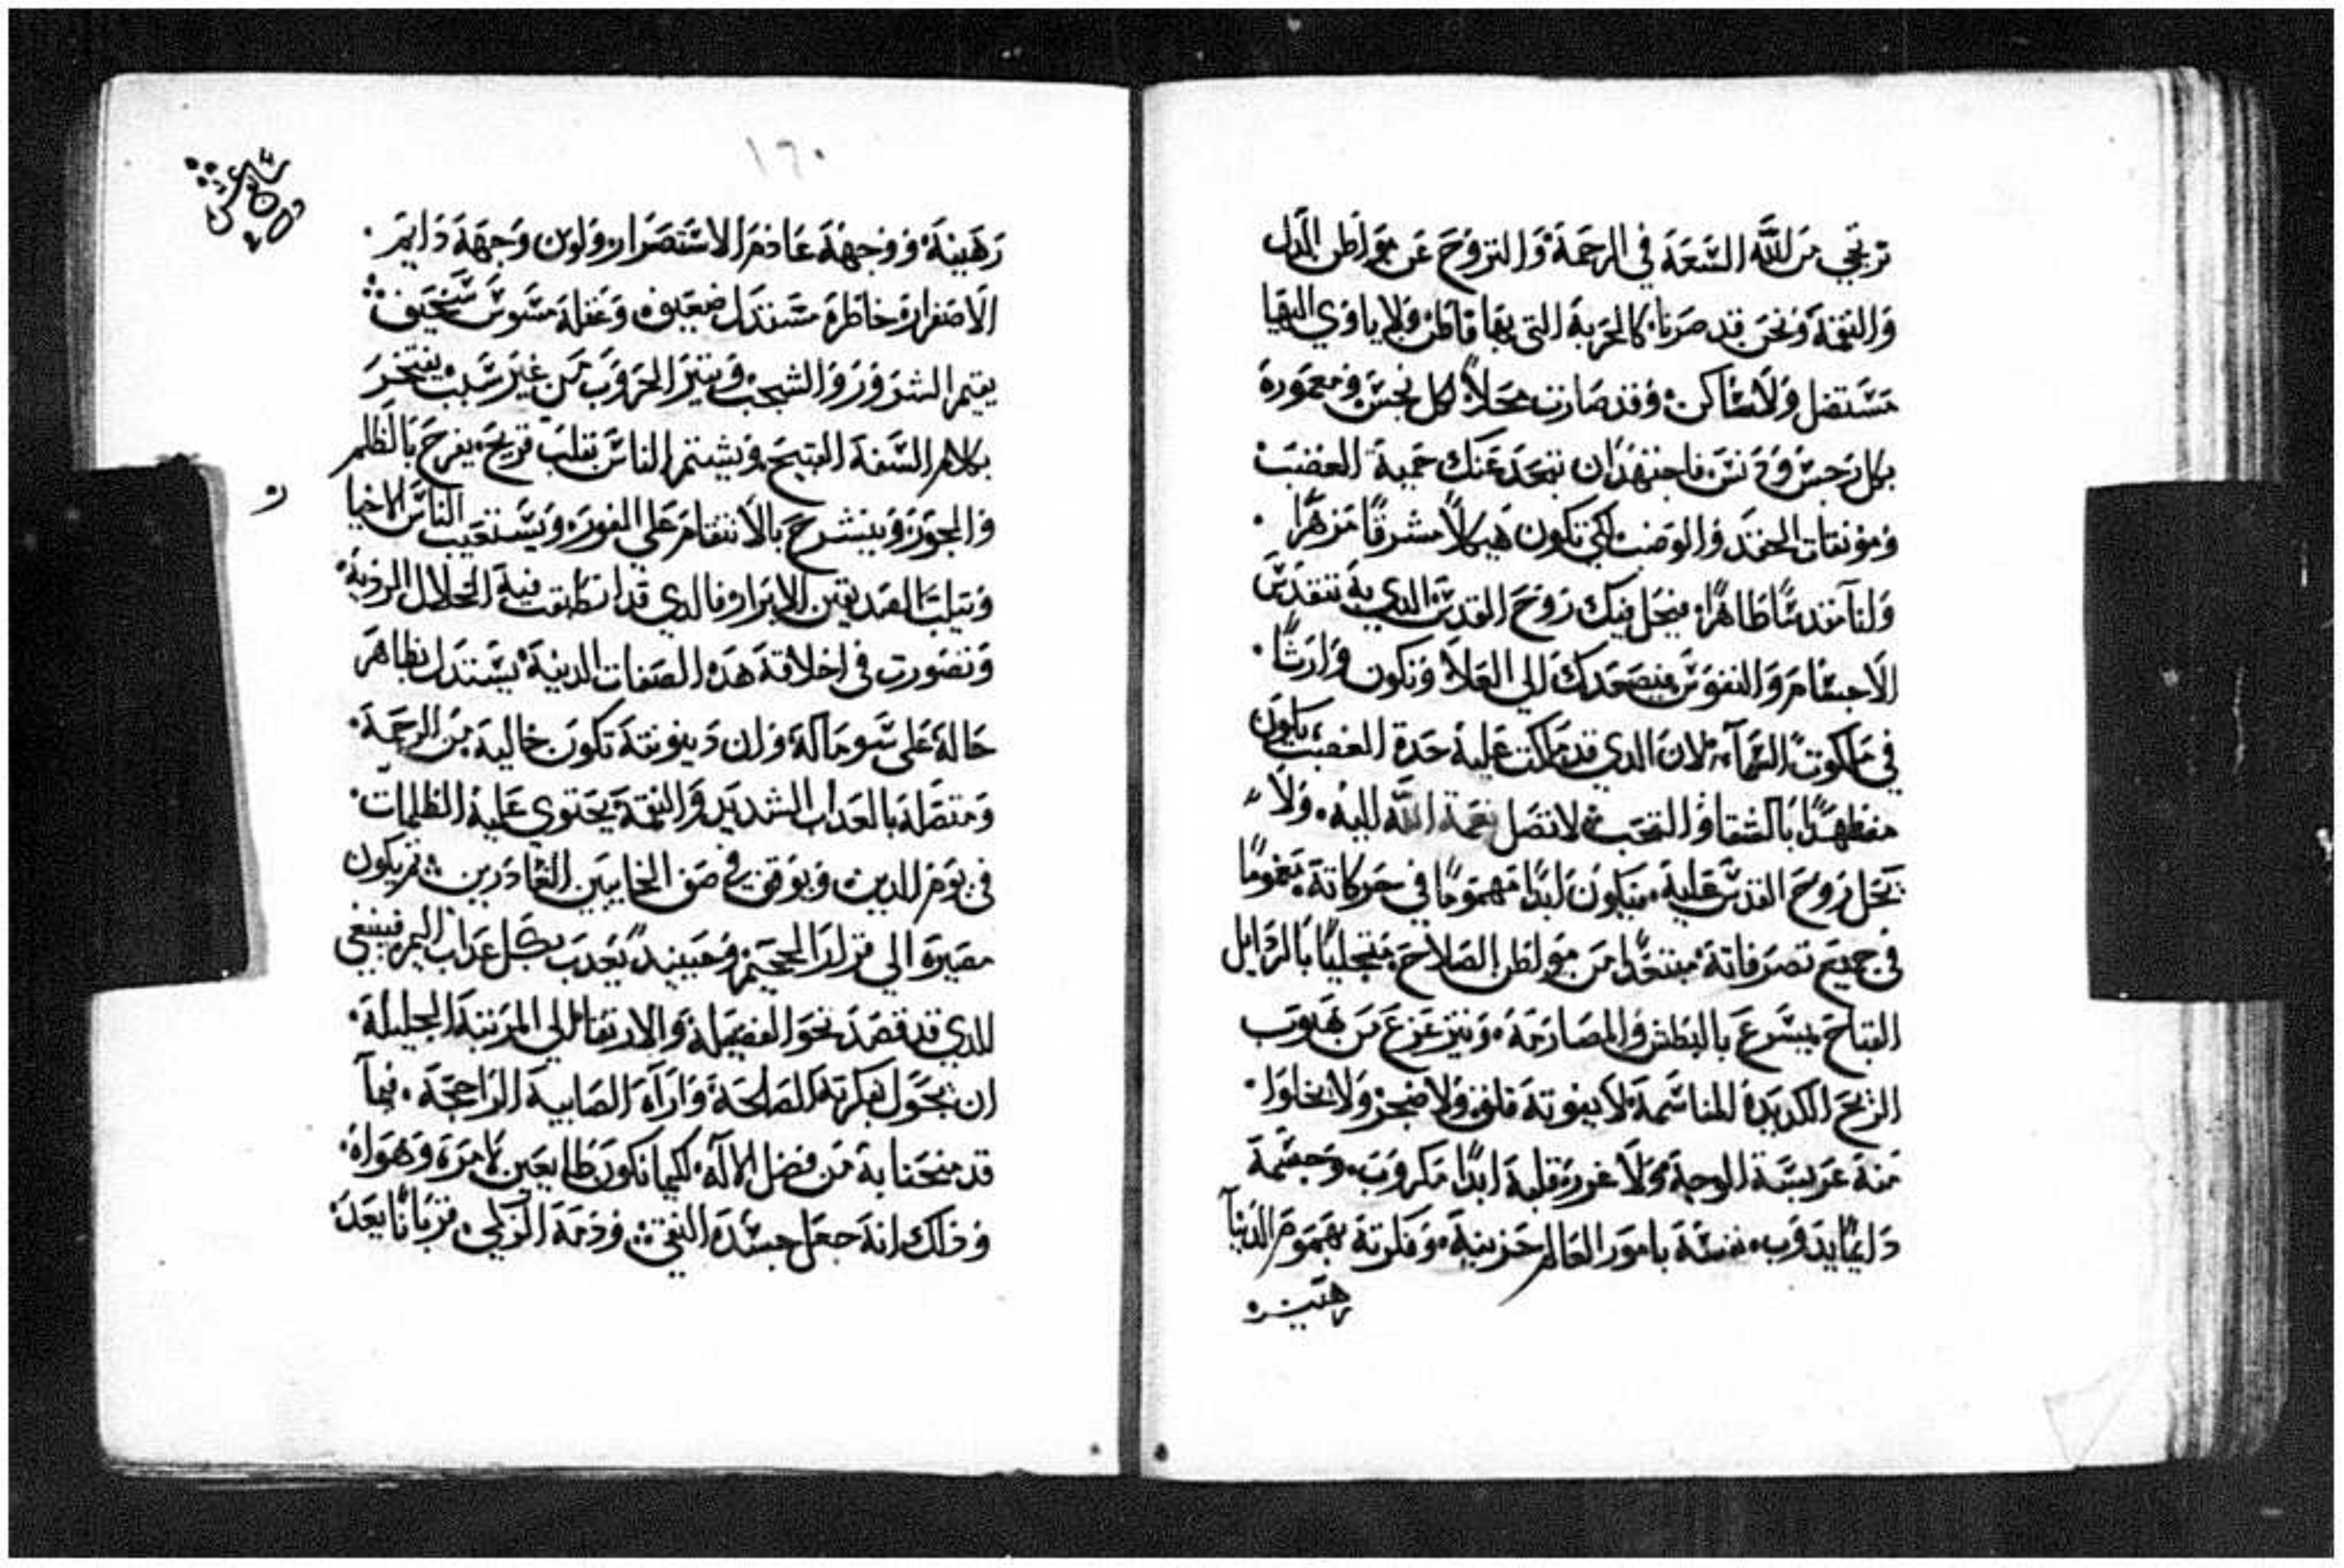 نرتجي من الله السعة في الرحمة والنزوح عن مواطن الدل
والنقمة ونحن قد صرنا كالخربة التي بها قاطن ولا ياوي اليها
مستضل ولا ساكن وقد صارت محلاً لكل نجس ومعمورة
بكل رجس ودنس فاجتهد ان تبعد عنك حمية الغضب
وموبقات الحقد والوصب لكي تكون هيكلاً مشرقًا مزهرًا
واناً مقدسًا طاهرًا فيحل فيك روح القدس الدي به تتقدس
الاجسام والنفوس فيصعدك الي العلا وتكون وارثًا
في ملكوت السمآء لان الدي قد ملكت عليه حدة الغضب يكون
مضطهدًا بالشقا والتعب لا تصل نعمة الله اليه ولا
يحل روح القدس عليه فيكون ابدًا مهمومًا في حركاته مغمومًا
في جميع تصرفاته مبتعدًا من مواطن الصلاح متحليًا بالردايل
القباح يسرع بالبطش والمصادمة ويتزعزع من هبوب
الريح الكدرة المناسمة لا يفوته قلق ولا ضجر ولا يخلوا
منه عوبسة الوجه ولا غرور قلبه ابدًا مكروب وجسمه
دايمًا يدوب نفسه بامور العالم حزينة وفكرته بهموم الدنيا
رهينة
١٦٠
سادس عشر
رهينة ووجهه عادم الاستضرار ولون وجهه دايم
الاصفرار خاطره مستدل ضعيف وعقله مشوش سخيف
يقيم الشرور والشجب ويتير الحروب من غير سبب يفتخر
بكلام السفه القبيح ويشتم الناس بقلب قريح يفرح بالظلم
والجور وينشرح بالانتقام علي الفور ويستعيب الناس الاخيا
ر
ويتلب الصديقين الابرار فالدي قد انطبقت فيه الخلال الردية
وتصورت في اخلاقه هده الصفات الدنية يستدل بظاهر
حاله على سو ماله وان دينونته تكون خالية من الرحمة
ومتصلة بالعداب الشديد والنقمة يحتوي عليه الظلمات
في يوم الدين ويوقف في صف الخايبين الغادرين ثم يكون
مصيره الي قرار الجحيم وحينيد يعدب بكل عداب اليم فينبغي
للدي قد قصد نحو الفضيلة والارتقا الي المرتبة الجليلة
ان يجول بفكرته الصالحة واراه الصايبة الراجحة فيمآ
قد منحنا به من فضل الاله لكيما نكون طايعين لامره وهواه
ودلك انه جعل جسده النقي ودمه الزكي قربانًا يعد